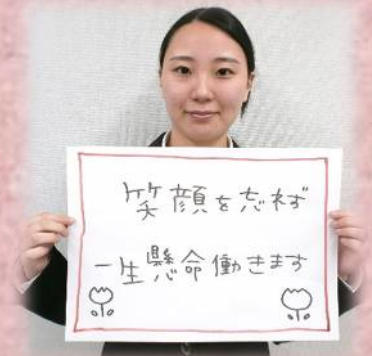 笑顔を忘れず
一生懸命働きます